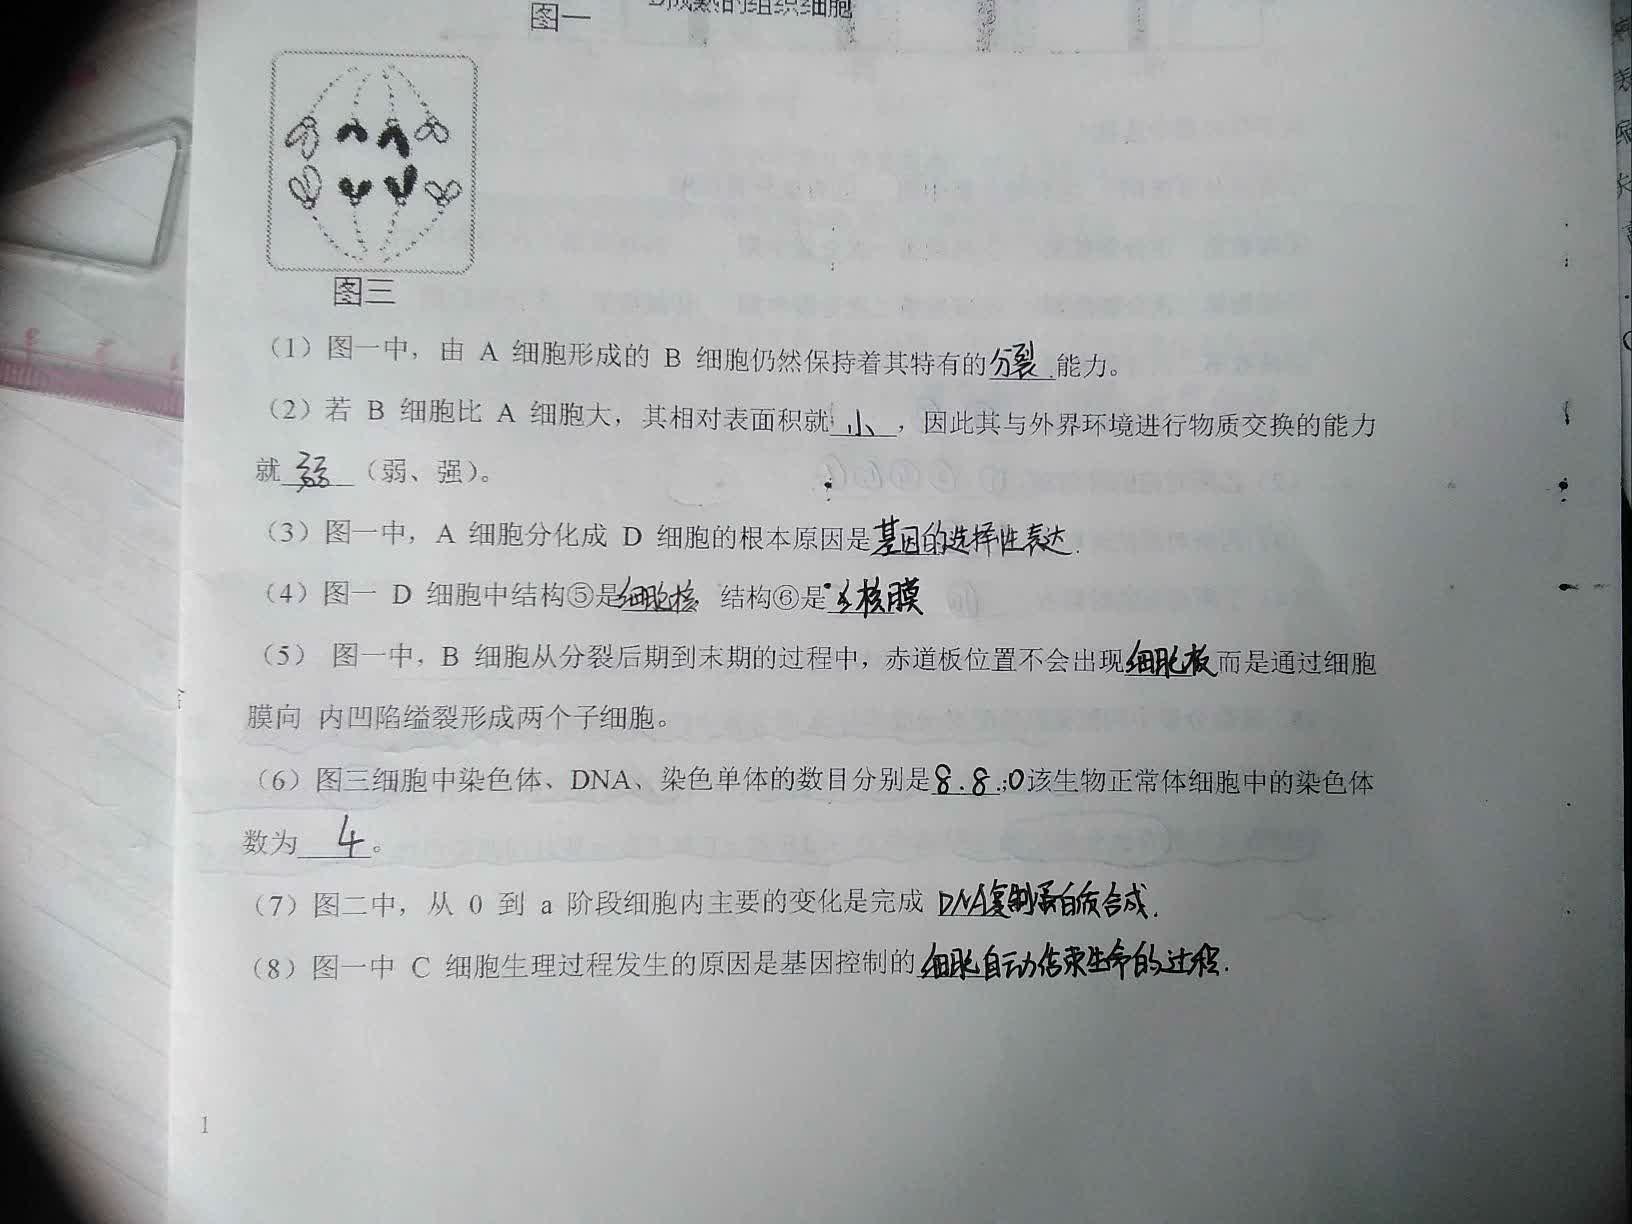 图一
D成熟的组织细胞
图三
(1) 图一中，由 A 细胞形成的 B 细胞仍然保持着其特有的分裂能力。
(2) 若 B 细胞比 A 细胞大，其相对表面积就小，因此其与外界环境进行物质交换的能力
就弱（弱、强）。
(3) 图一中，A 细胞分化成 D 细胞的根本原因是基因的选择性表达.
(4) 图一 D 细胞中结构⑤是细胞核 结构⑥是核膜
(5) 图一中，B 细胞从分裂后期到末期的过程中，赤道板位置不会出现细胞板而是通过细胞
膜向 内凹陷缢裂形成两个子细胞。
(6) 图三细胞中染色体、DNA、染色单体的数目分别是8.8.;0该生物正常体细胞中的染色体
数为 4。
(7) 图二中，从 0 到 a 阶段细胞内主要的变化是完成 DNA复制蛋白质合成.
(8) 图一中 C 细胞生理过程发生的原因是基因控制的细胞自动结束生命的过程.
1